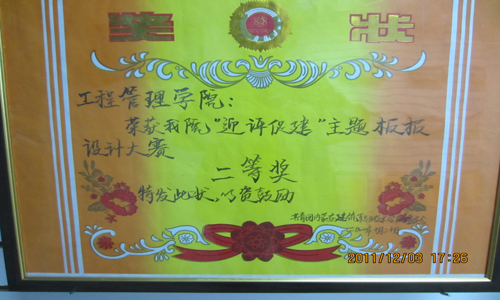 奖状
工程管理学院：
荣获我院"迎评促建"主题板报
设计大赛
二等奖
特发此状，以资鼓励
2011/12/03 17:26